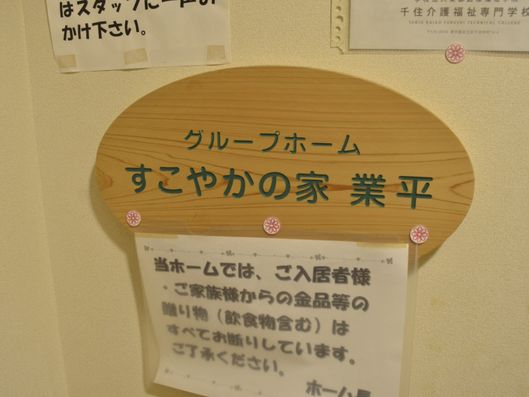 はスタッフに一声お
かけ下さい。
千住介護福祉専門学校
SENJU KAIGO FUKUSHI TECHNICAL COLLEGE
グループホーム
すこやかの家 業平
当ホームでは、ご入居者様
・ご家族様からの金品等の
贈り物（飲食物含む）は
すべてお断りしています。
ご了承ください。
ホーム長